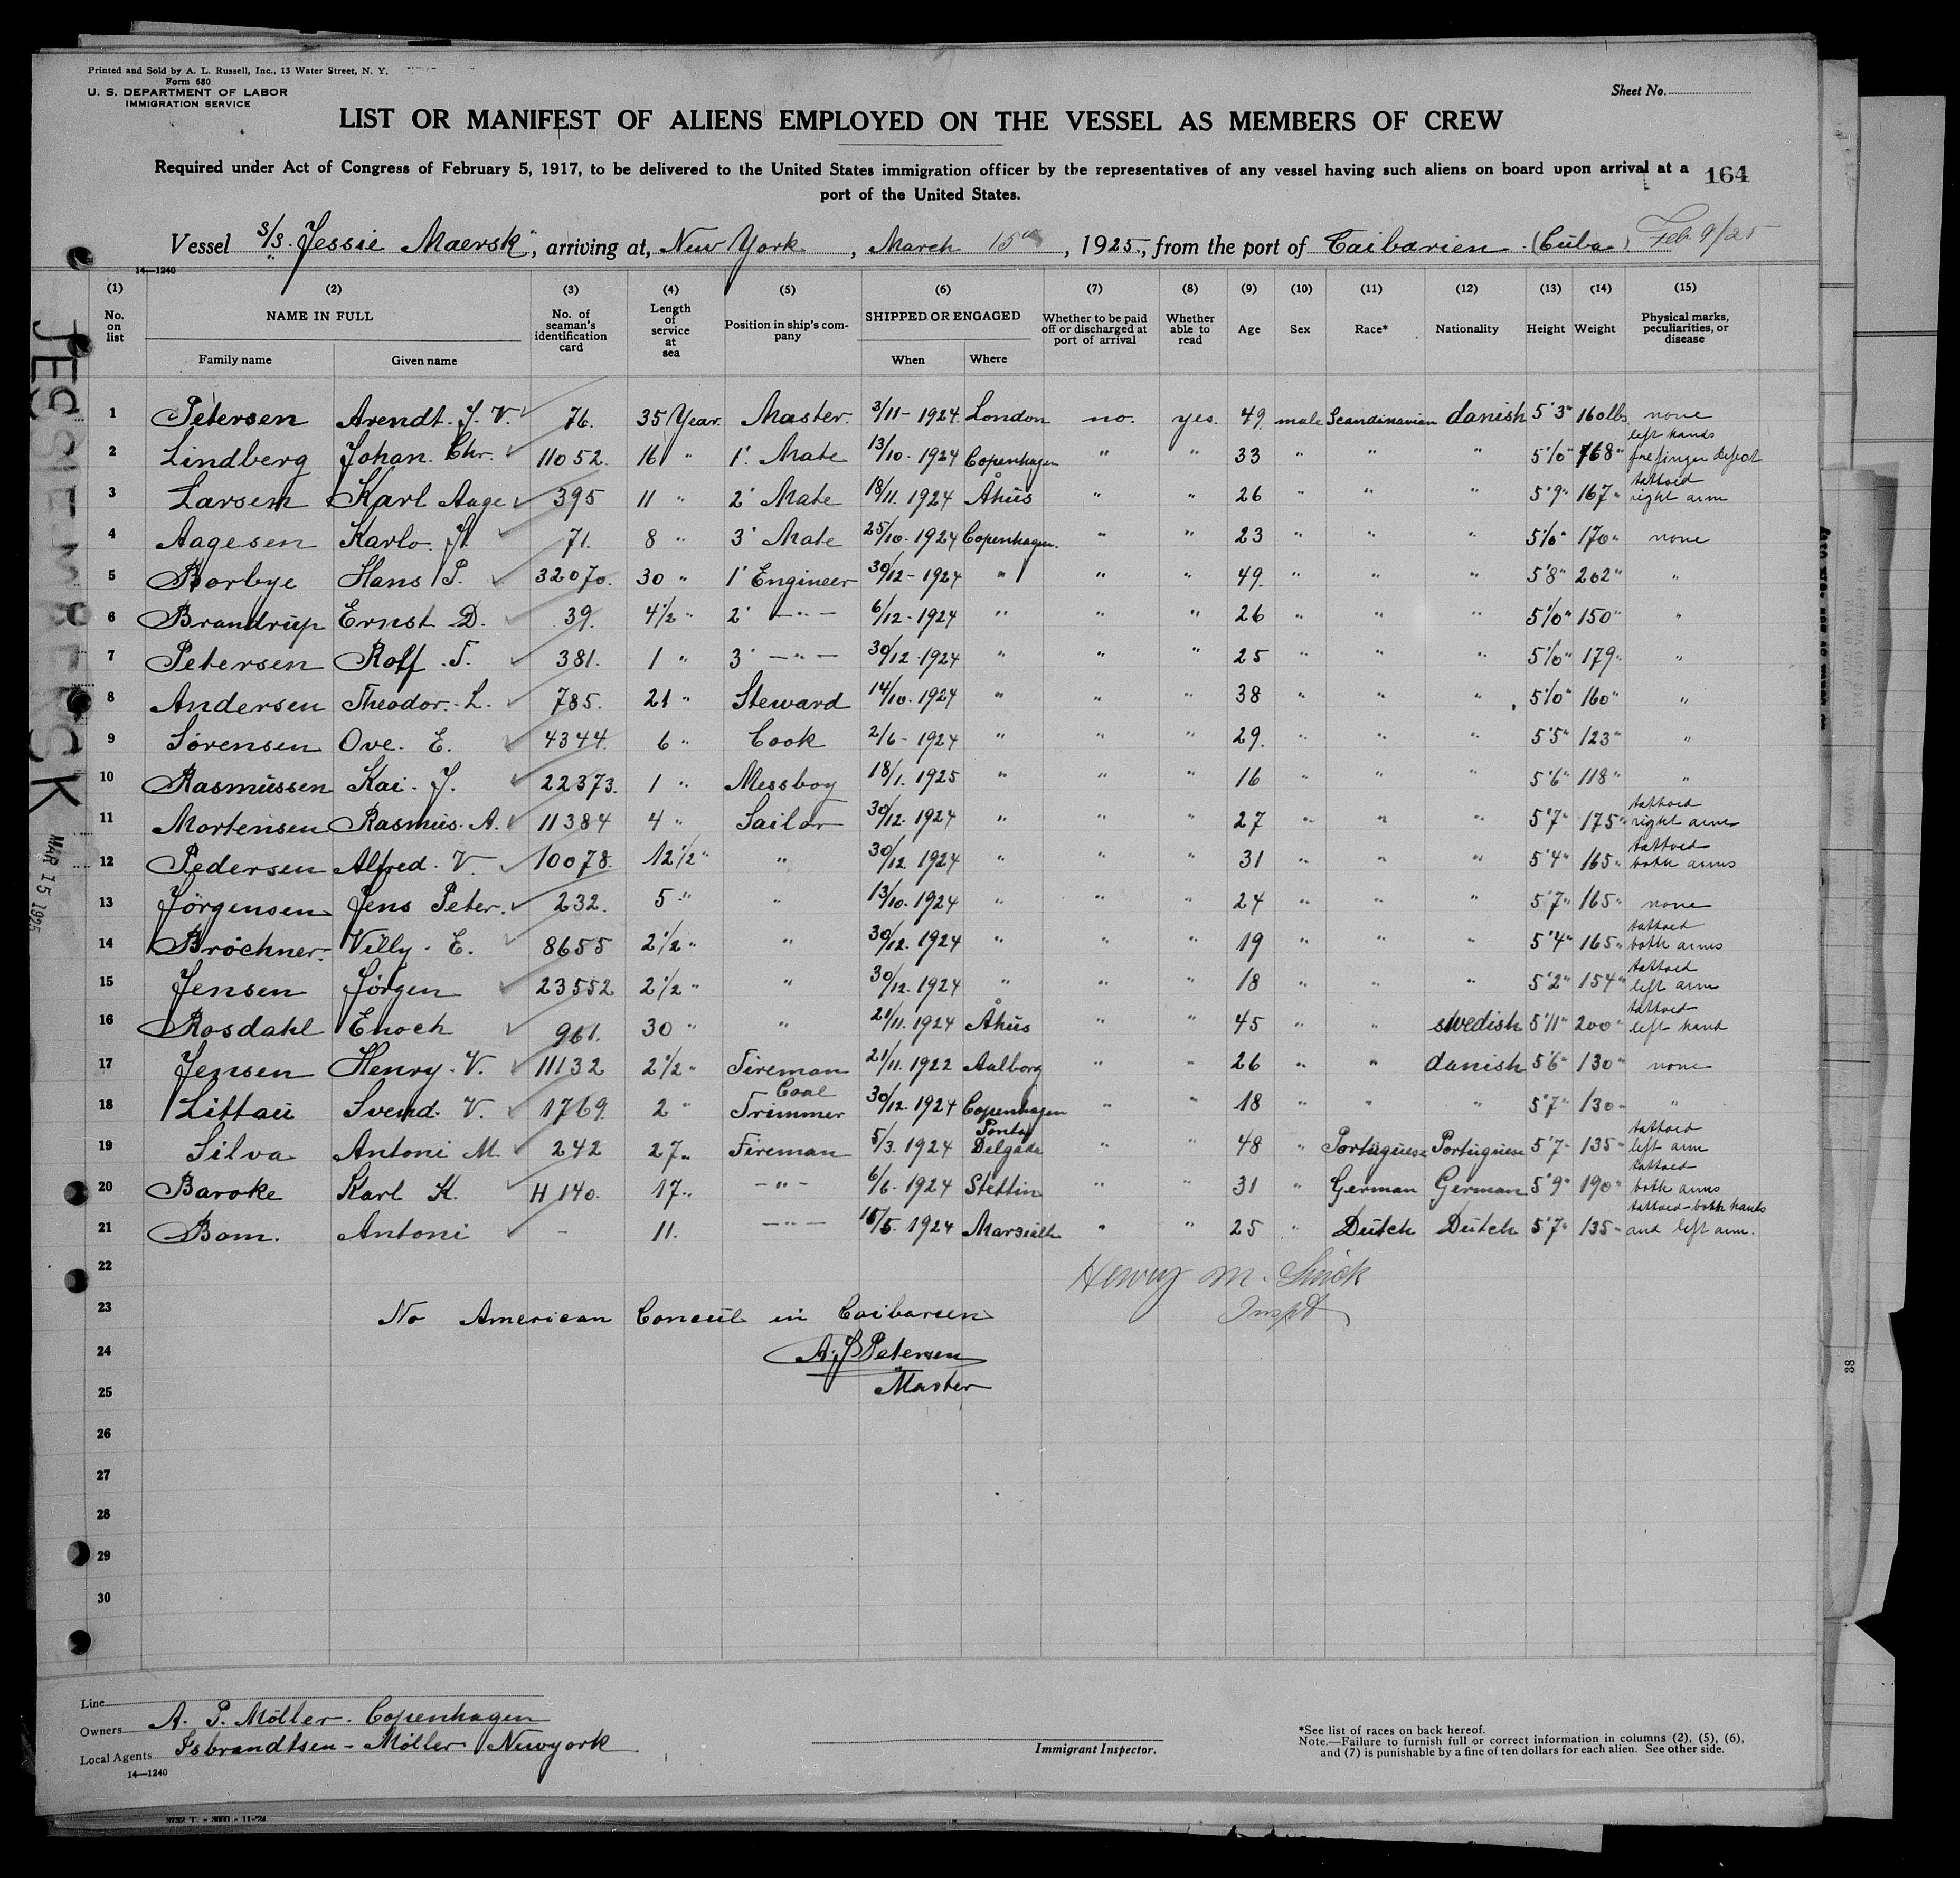 Printed and Sold by A. L. Russell, Inc., 13 Water Street, N. Y.
Form 680
U. S. DEPARTMENT OF LABOR
IMMIGRATION SERVICE
Sheet No.
LIST OR MANIFEST OF ALIENS EMPLOYED ON THE VESSEL AS MEMBERS OF CREW
Required under Act of Congress of February 5, 1917, to be delivered to the United States immigration officer by the representatives of any vessel having such aliens on board upon arrival at a
port of the United States.
164
Vessel S/S. "Jessie Maersk", arriving at, New York, March 15th, 1925, from the port of Caibarien (Cuba) Feb. 9/25
14—1240
(1) (2) (3) (4) (5) (6) (7) (8) (9) (10) (11) (12) (13) (14) (15)
No. on list NAME IN FULL Family name Given name No. of seaman's identification card Length of service at sea Position in ship's company SHIPPED OR ENGAGED When Where Whether to be paid off or discharged at port of arrival Whether able to read Age Sex Race* Nationality Height Weight Physical marks, peculiarities, or disease
1 Petersen Arendt. J. V. 76. 35 Year. Master. 3/11- 1924. London no. yes. 49. male Scandinavian danish 5'3" 160 lbs none
2 Lindberg Johan. Chr. 11052. 16 " 1' Mate 13/10. 1924 Copenhagen " " 33 " " " 5'10" 168" left hands forefinger
3 Larsen Karl Aage 395 11 " 2' Mate 18/11. 1924 Åhus " " 26 " " " 5'9" 167" tattoed right arm
4 Aagesen Karlo. 71. 8 " 3' Mate 25/10. 1924 Copenhagen. " " 23 " " " 5'10" 170" none
5 Borbye Hans P. 32070. 30 " 1' Engineer 30/12- 1924 " " " 49. " " " 5'8" 202" "
6 Brandrup Ernst D. 39. 4 1/2 " 2' —"— 6/12- 1924 " " " 26 " " " 5'10" 150" "
7 Petersen Rolf. T. 381. 1 " 3' —"— 30/12. 1924 " " " 25 " " " 5'10" 179" "
8 Andersen Theodor. L. 785. 21 " Steward 14/10. 1924 " " " 38 " " " 5'10" 160" "
9 Sørensen Ove. E. 4344. 6 " Cook 2/6- 1924 " " " 29. " " " 5'5" 123" "
10 Rasmussen Kai. J. 22373. 1 " Messboy 18/1. 1925 " " " 16 " " " 5'6" 118" "
11 Mortensen Rasmus. A. 11384 4 " Sailor 30/12. 1924 " " " 27 " " " 5'7" 175" tattoed right arm
12 Pedersen Alfred. V. 10078. 12 1/2 " " 30/12 1924 " " " 31 " " " 5'4" 165" tattoed both arms
13 Jörgensen Jens Peter. 232. 5 " " 13/10. 1924 " " " 24 " " " 5'7" 165" none
14 Bröchner. Villy. E. 8655 2 1/2 " " 30/12. 1924 " " " 19 " " " 5'4" 165" tattoed both arms
15 Jensen Jörgen 23552 2 1/2 " " 30/12. 1924 " " " 18 " " " 5'2" 154" tattoed left arm
16 Rosdahl Enoch 961. 30 " " 21/11. 1924 Åhus " " 45 " " swedish 5'11" 200" tattoed left hand
17 Jensen Henry. V. 11132 2 1/2 " Fireman 21/11. 1922 Aalborg " " 26 " " danish 5'6" 130" none
18 Littau Svend. V. 1769. 2 " Coal Trimmer 30/12. 1924 Copenhagen " " 18 " " " 5'7" 130" "
19 Silva Antoni M. 242 27 " Fireman 5/3. 1924 Ponta Delgada " " 48 " Portuguese Portuguese 5'7" 135" tattoed left arm
20 Baroke Karl K. H 140. 17 " —"— 6/6. 1924 Stettin " " 31 " German German 5'9" 190" tattoed both arms
21 Bom. Antoni - 11. —"— 15/5. 1924 Marseille " " 25 " Dutch Dutch 5'7" 135" tattoed-both hands and left arm.
22 Henry M.
23 No American Consul in Caibarien Inspt
24 A. J. Petersen
25 Master
26
27
28
29
30
JESSIE MAERSK
MAR 15 1925
Line
Owners A. P. Möller. Copenhagen
Local Agents Isbrandtsen - Möller Newyork
14—1240
Immigrant Inspector.
*See list of races on back hereof.
Note.—Failure to furnish full or correct information in columns (2), (5), (6),
and (7) is punishable by a fine of ten dollars for each alien. See other side.
38